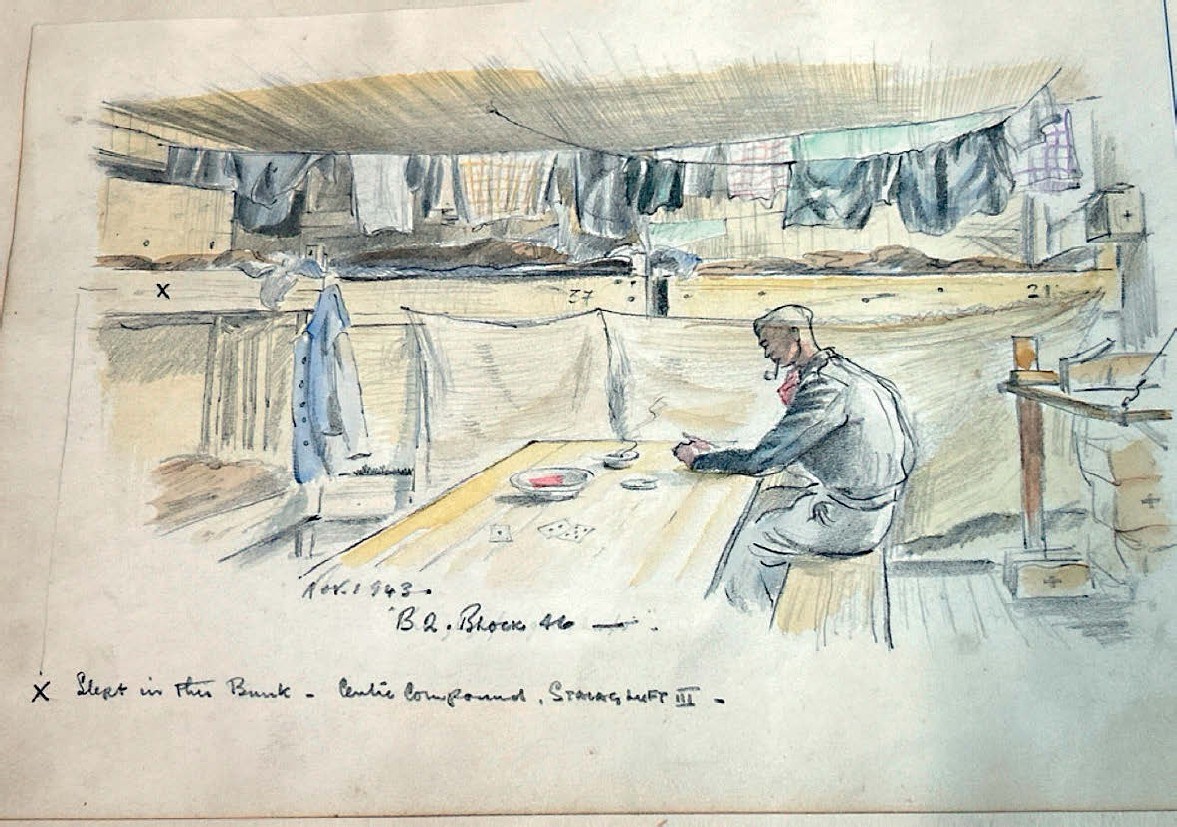 X
37
21
Nov. 1943.
B2. Block 46 —
X Slept in this Bunk - Centre Compound, STALAG LUFT III -